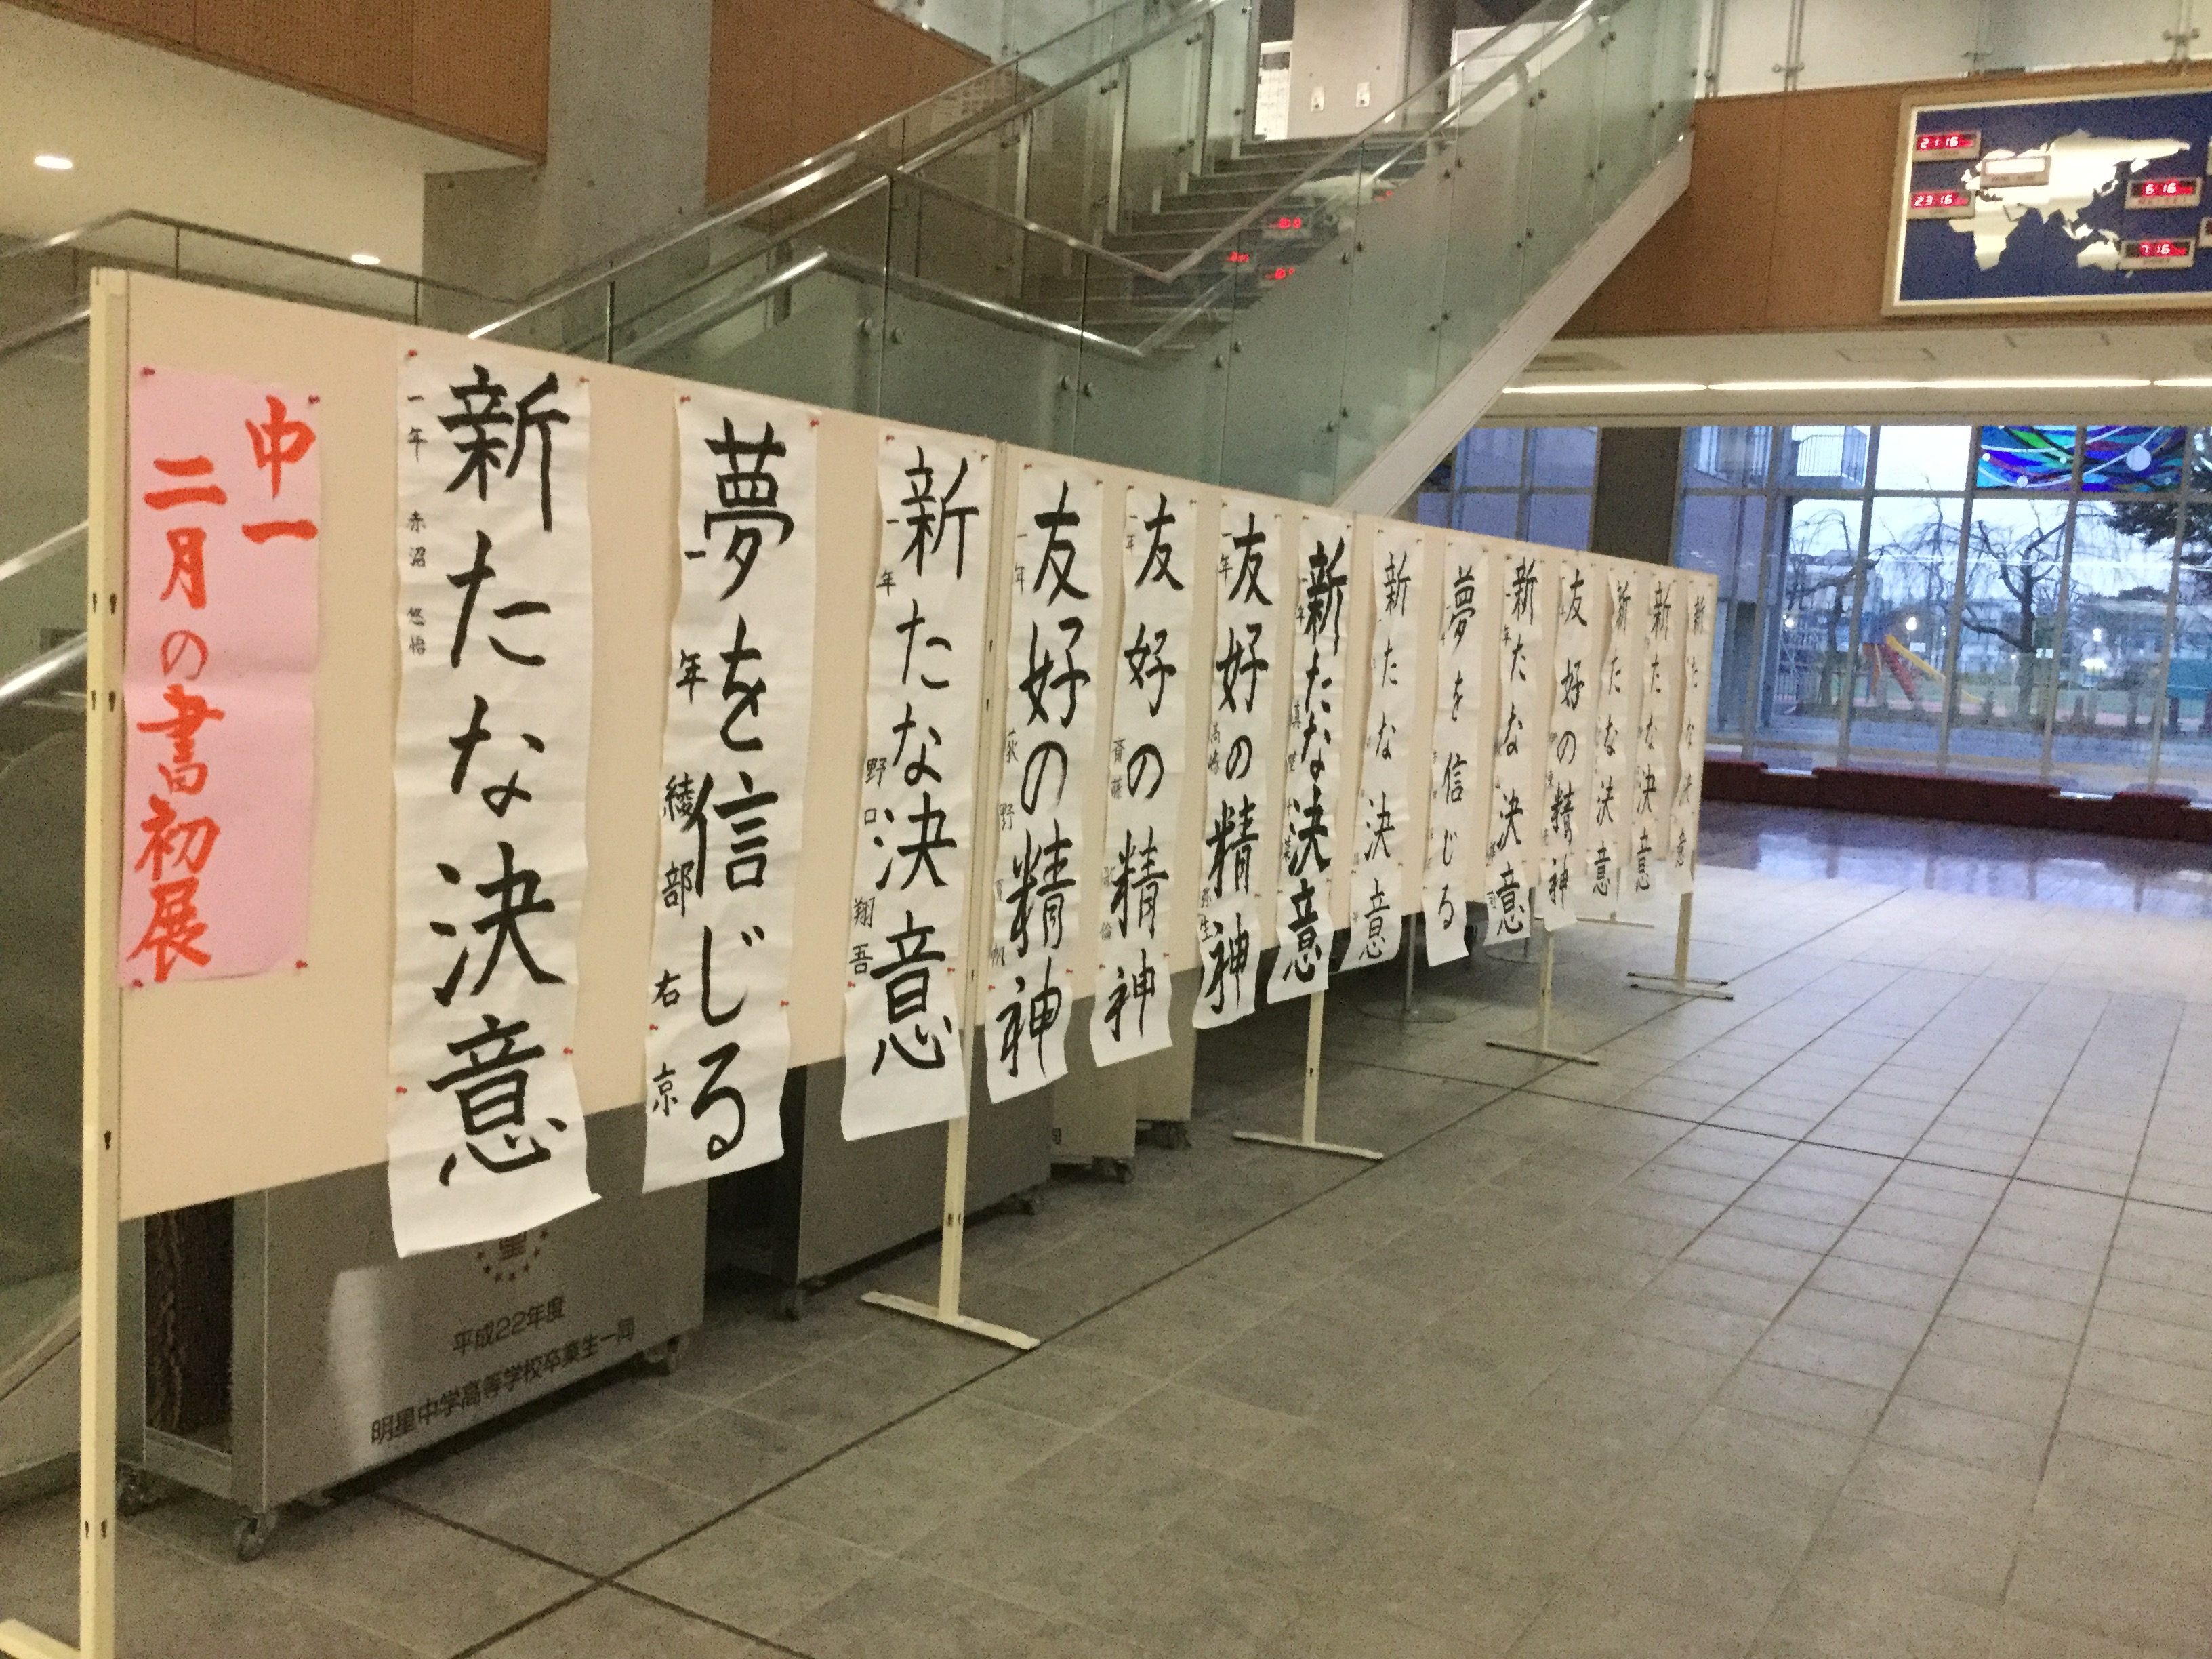 中一
二月の書初展
新たな決意
一年 赤沼 悠悟
夢を信じる
一年 綾部 右京
新たな決意
一年 野口 翔吾
友好の精神
一年 荻野
友好の精神
一年 斎藤
友好の精神
一年 高嶋 弥生
新たな決意
新たな決意
夢を信じる
新たな決意
友好の精神
新たな決意
新たな決意
新たな決意
平成22年度
明星中学高等学校卒業生一同
21:16
23:16
6:16
7:16